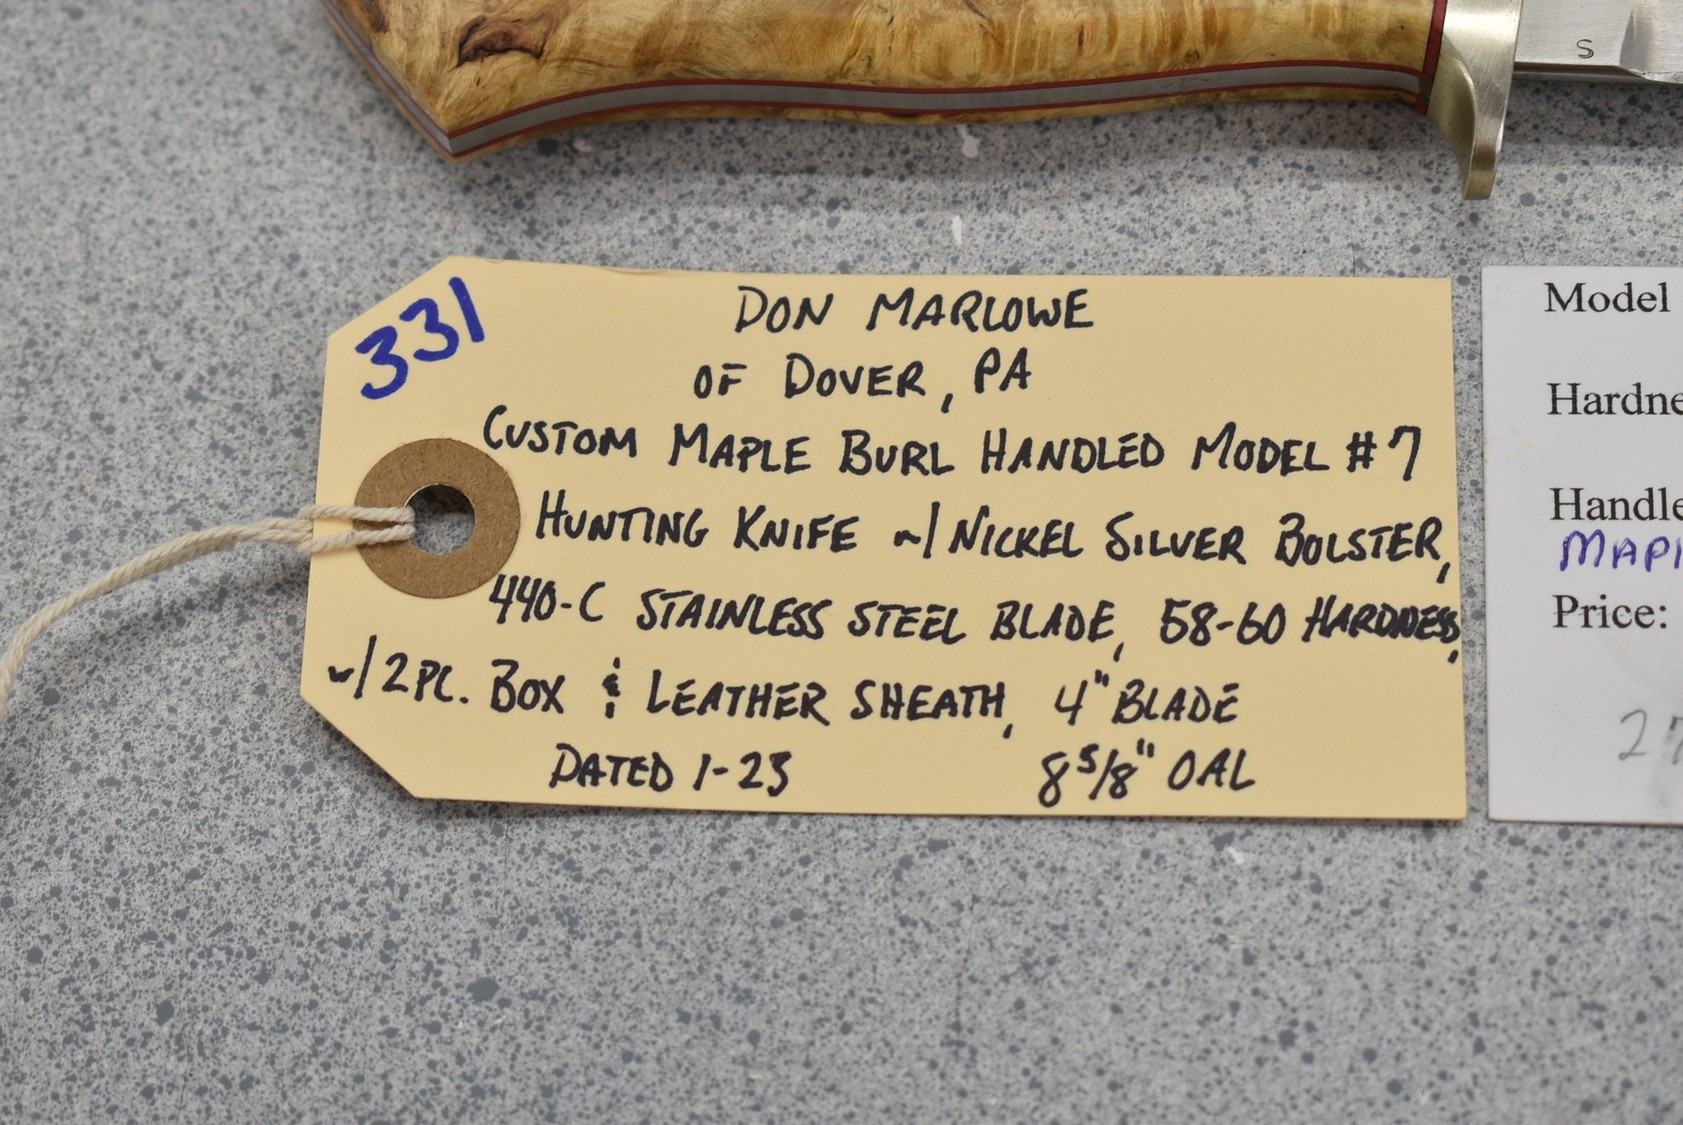 S
331
DON MARLOWE
OF DOVER, PA
CUSTOM MAPLE BURL HANDLED MODEL #7
HUNTING KNIFE w/ NICKEL SILVER BOLSTER,
440-C STAINLESS STEEL BLADE, 58-60 HARDNESS,
w/ 2 PC. BOX & LEATHER SHEATH, 4" BLADE
DATED 1-23 8 5/8" OAL
Model
Hardne
Handle
MAP
Price:
27